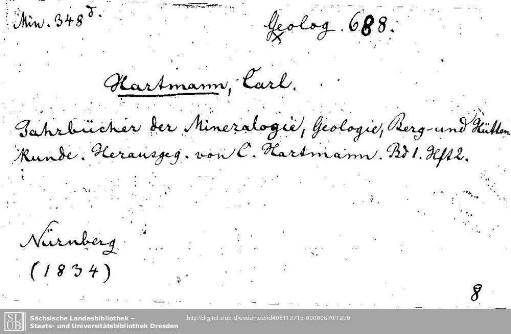 Min. 348 d.
Geolog. 688.
Hartmann, Carl.
Jahrbücher der Mineralogie, Geologie, Berg- und Hütten
kunde. Herausgeg. von C. Hartmann. Bd 1. Hft 2.
Nürnberg
(1834)
8
SLUB
Sächsische Landesbibliothek –
Staats- und Universitätsbibliothek Dresden